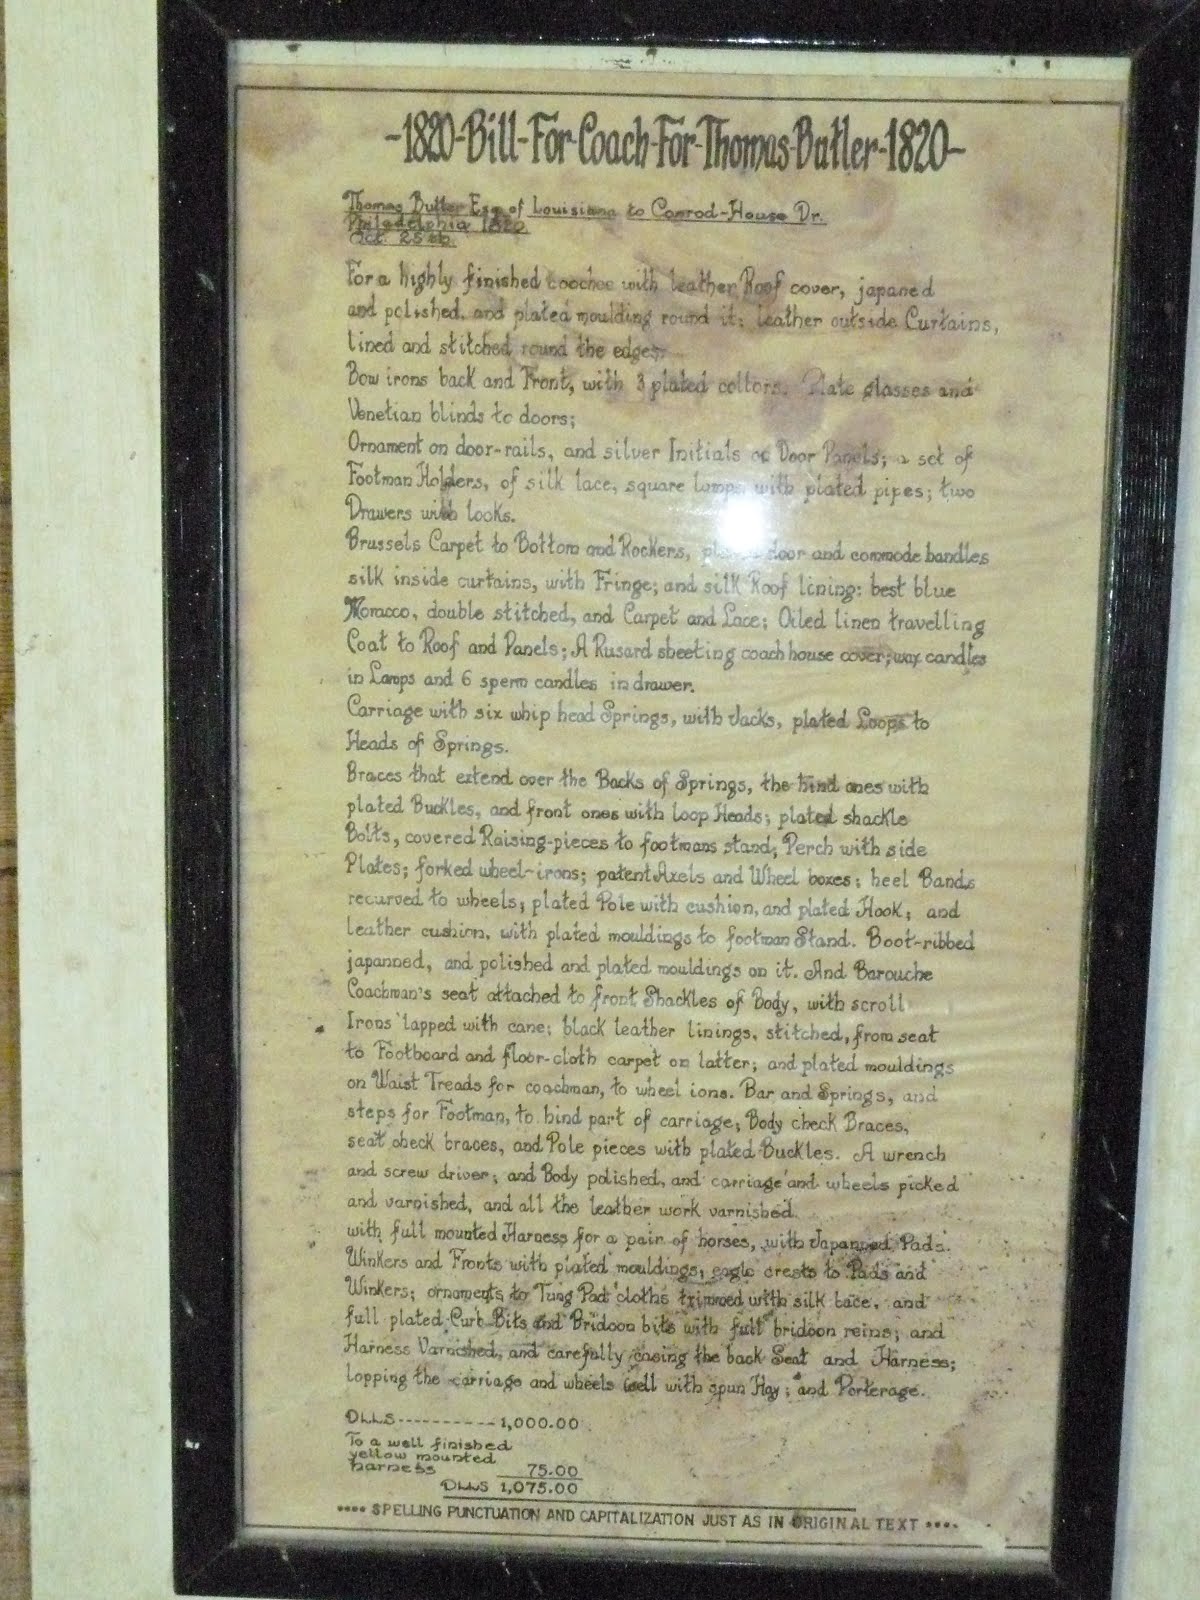 -1820-Bill-For-Coach-For-Thomas-Butler-1820-
Thomas Butler Esq. of Louisiana to Conrod-House Dr.
Philadelphia 1820
Oct. 25th
For a highly finished coochee with leather Roof cover, japaned
and polished, and plated moulding round it; leather outside Curtains,
lined and stitched round the edges.
Bow irons back and Front, with 3 plated collors. Plate glasses and
Venetian blinds to doors;
Ornament on door-rails, and silver Initials on Door Panels; a set of
Footman Holders, of silk lace, square lamps with plated pipes; two
Drawers with locks.
Brussels Carpet to Bottom and Rockers, plated door and commode handles
silk inside curtains, with Fringe; and silk Roof lining: best blue
Moracco, double stitched, and Carpet and Lace; Oiled linen travelling
Coat to Roof and Panels; A Rusard sheeting coach house cover; wax candles
in Lamps and 6 sperm candles in drawer.
Carriage with six whip head Springs, with Jacks, plated Loops to
Heads of Springs.
Braces that extend over the Backs of Springs, the hind ones with
plated Buckles, and front ones with Loop Heads; plated shackle
Bolts, covered Raising-pieces to footmans stand; Perch with side
Plates; forked wheel-irons; patent Axels and Wheel boxes; heel Bands
recurved to wheels; plated Pole with cushion, and plated Hook; and
leather cushion, with plated mouldings to footman Stand. Boot-ribbed
japanned, and polished and plated mouldings on it. And Barouche
Coachman's seat attached to front Shackles of Body, with scroll
Irons lapped with cane; black leather linings, stitched, from seat
to Footboard and floor-cloth carpet on latter; and plated mouldings
on Waist Treads for coachman, to wheel ions. Bar and Springs, and
steps for Footman, to hind part of carriage; Body check Braces,
seat check braces, and Pole pieces with plated Buckles. A wrench
and screw driver; and Body polished, and carriage and wheels picked
and varnished, and all the leather work varnished.
with full mounted Harness for a pair of horses, with Japanned Pads.
Winkers and Fronts with plated mouldings; eagle crests to Pads and
Winkers; ornaments to Tung Pad cloths trimmed with silk lace, and
full plated Curb Bits and Bridoon bits with full bridoon reins; and
Harness Varnished, and carefully casing the back Seat and Harness;
lopping the carriage and wheels well with spun Hay; and Porterage.
DLLS----------1,000.00
To a well finished
yellow mounted
harness 75.00
DLLS 1,075.00
•••• SPELLING PUNCTUATION AND CAPITALIZATION JUST AS IN ORIGINAL TEXT ••••